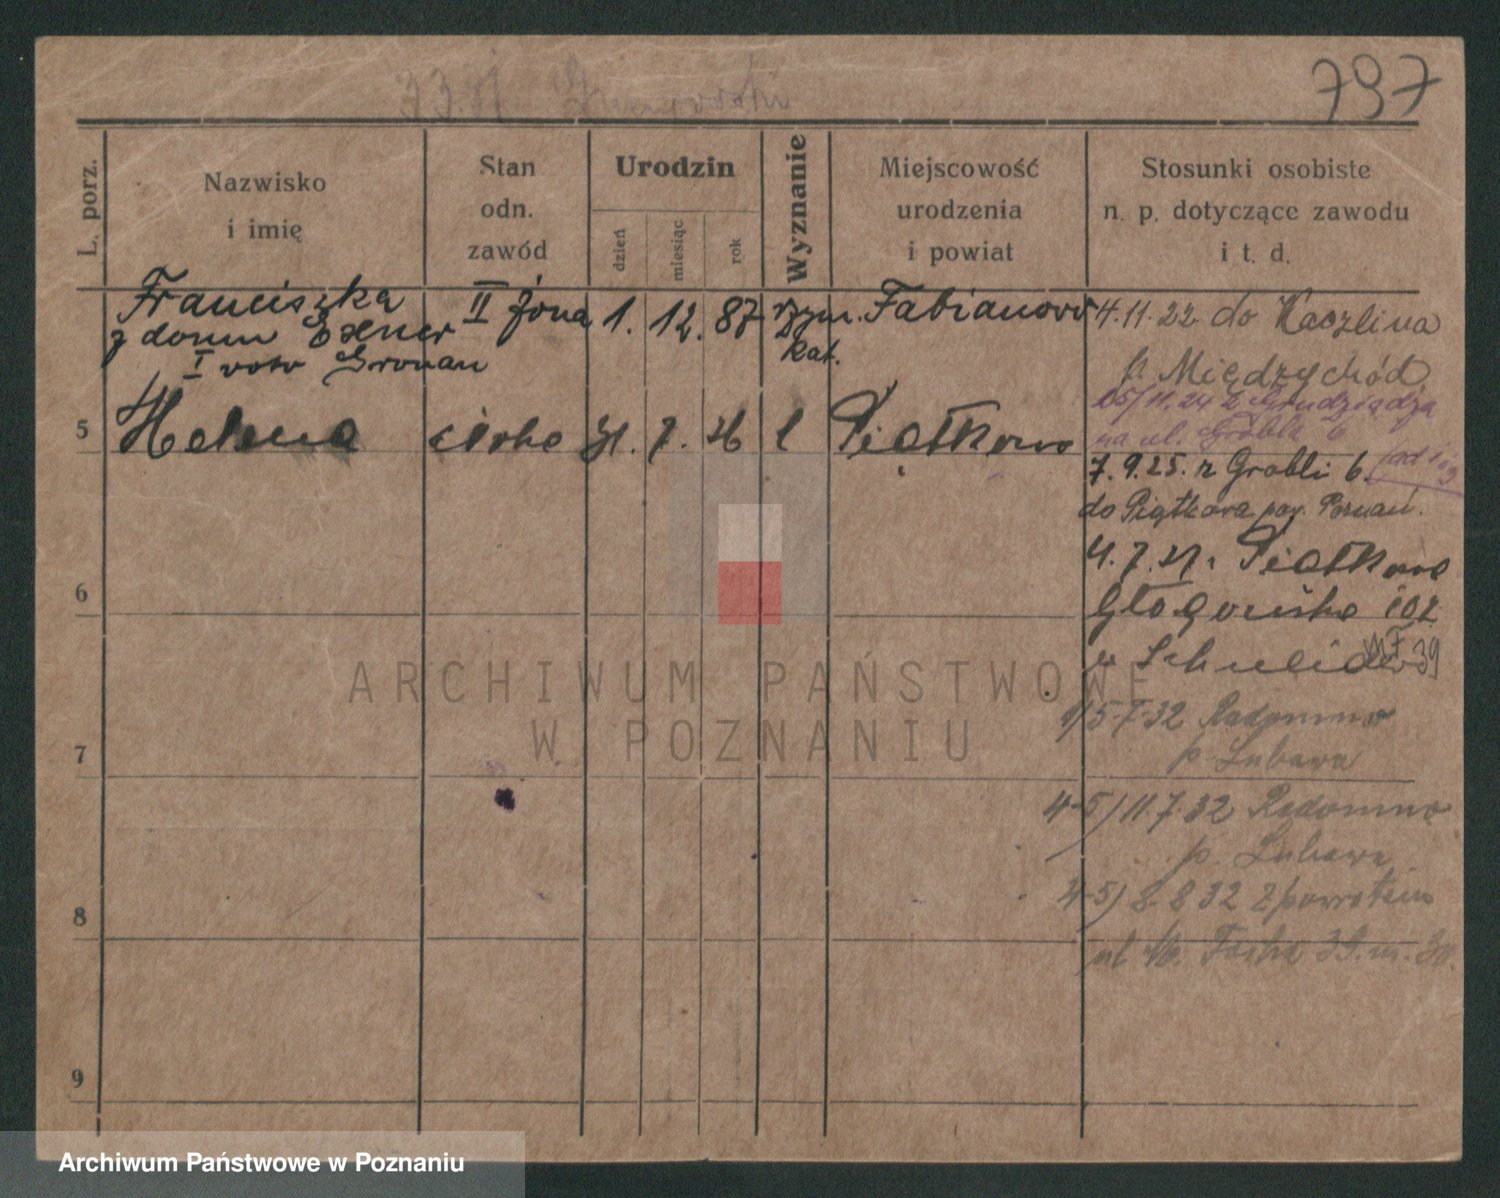 797
L. porz.
Nazwisko
i imię
Stan
odn.
zawód
Urodzin
dzień
miesiąc
rok
Wyznanie
Miejscowość
urodzenia
i powiat
Stosunki osobiste
n. p. dotyczące zawodu
i t. d.
Franciszka
z domu Exner
I voto Gronau
II żona
1. 12. 87
rzym.
kat.
Fabianowo
4.11.22 do Kaczlina
p. Międzychód
15/11.24 z Grudziądza
na ul. Grobla 6
5
Helena
córka
31. 7. 26
Piątkowo
7.9.25. z Grobli 6.
do Piątkowa pow. Poznań.
4.7.27. Piątkowo
Głogowska 102
u Schneider
39
6
5.7.32 Radomno
p. Lubawa
7
4-5) 11.7.32 Radomno
p. Lubawa
4-5) 8.8.32 z powrotem
8
ul. M. Focha 39. m.
9
ARCHIWUM PAŃSTWOWE
W POZNANIU
Archiwum Państwowe w Poznaniu